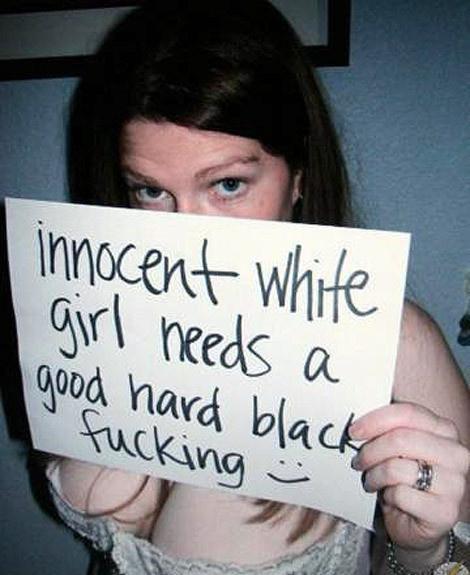 innocent white
girl needs a
good hard black
fucking :)